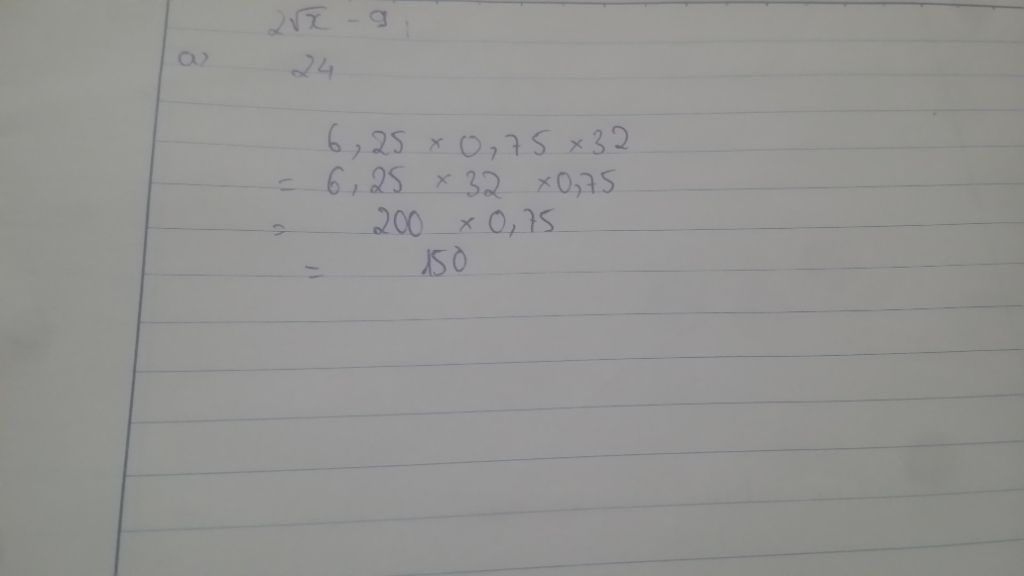 2√x - 9
a) 24
6,25 × 0,75 × 32
= 6,25 × 32 × 0,75
= 200 × 0,75
= 150